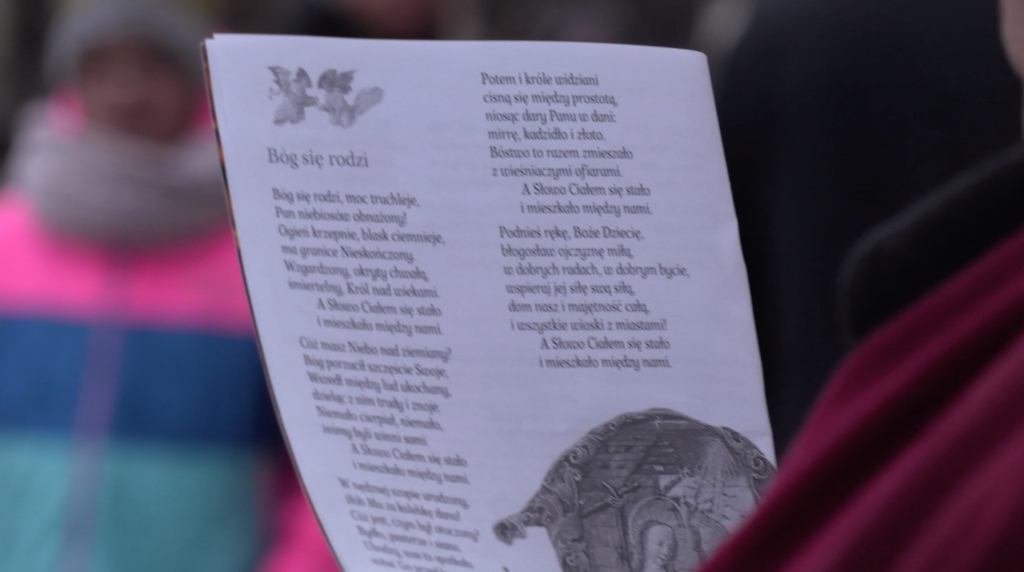 Bóg się rodzi
Bóg się rodzi, moc truchleje,
Pan niebiosów obnażony!
Ogień krzepnie, blask ciemnieje,
ma granice Nieskończony.
Wzgardzony, okryty chwałą,
śmiertelny, Król nad wiekami.
A Słowo Ciałem się stało
i mieszkało między nami.
Cóż masz Niebo nad ziemiany?
Bóg porzucił szczęście Swoje,
Wszedł między lud ukochany,
dzieląc z nim trudy i znoje.
Niemało cierpiał, niemało,
żeśmy byli winni sami.
A Słowo Ciałem się stało
i mieszkało między nami.
W nędznej szopie urodzony,
żłób Mu za kolebkę dano!
Cóż jest, czym był otoczony?
Bydło, pasterze i siano.
Potem i króle widziani
cisną się między prostotą,
niosąc dary Panu w dani:
mirrę, kadzidło i złoto.
Bóstwo to razem zmieszało
z wieśniaczymi ofiarami.
A Słowo Ciałem się stało
i mieszkało między nami.
Podnieś rękę, Boże Dziecię,
błogosław ojczyznę miłą,
w dobrych radach, w dobrym bycie,
wspieraj jej siłę swą siłą,
dom nasz i majętność całą,
i wszystkie wioski z miastami!
A Słowo Ciałem się stało
i mieszkało między nami.